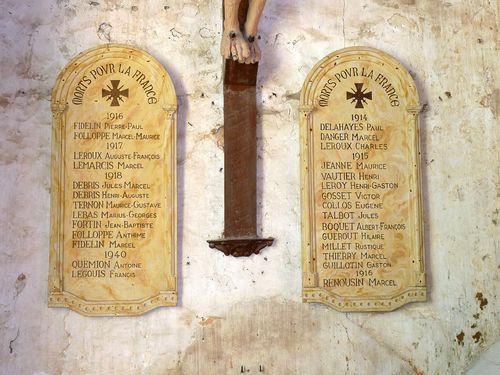 MORTS POVR LA FRANCE
1916
FIDELIN PIERRE-PAUL
FOLLOPPE MARCEL-MAURICE
1917
LEROUX AUGUSTE-FRANÇOIS
LEMARCIS MARCEL
1918
DEBRIS JULES-MARCEL
DEBRIS HENRI-AUGUSTE
TERNON MAURICE-GUSTAVE
LEBAS MARIUS-GEORGES
FORTIN JEAN-BAPTISTE
FOLLOPPE ANTHIME
FIDELIN MARCEL
1940
QUEMION ANTOINE
LEGOUIS FRANCIS
MORTS POVR LA FRANCE
1914
DELAHAYES PAUL
DANGER MARCEL
LEROUX CHARLES
1915
JEANNE MAURICE
VAUTIER HENRI
LEROY HENRI-GASTON
GOSSET VICTOR
COLLOS EUGENE
TALBOT JULES
BOQUET ALBERT-FRANÇOIS
GUEROUT HILAIRE
MILLET RUSTIQUE
THIERRY MARCEL
GUILLOTIN GASTON
1916
RENOUSIN MARCEL